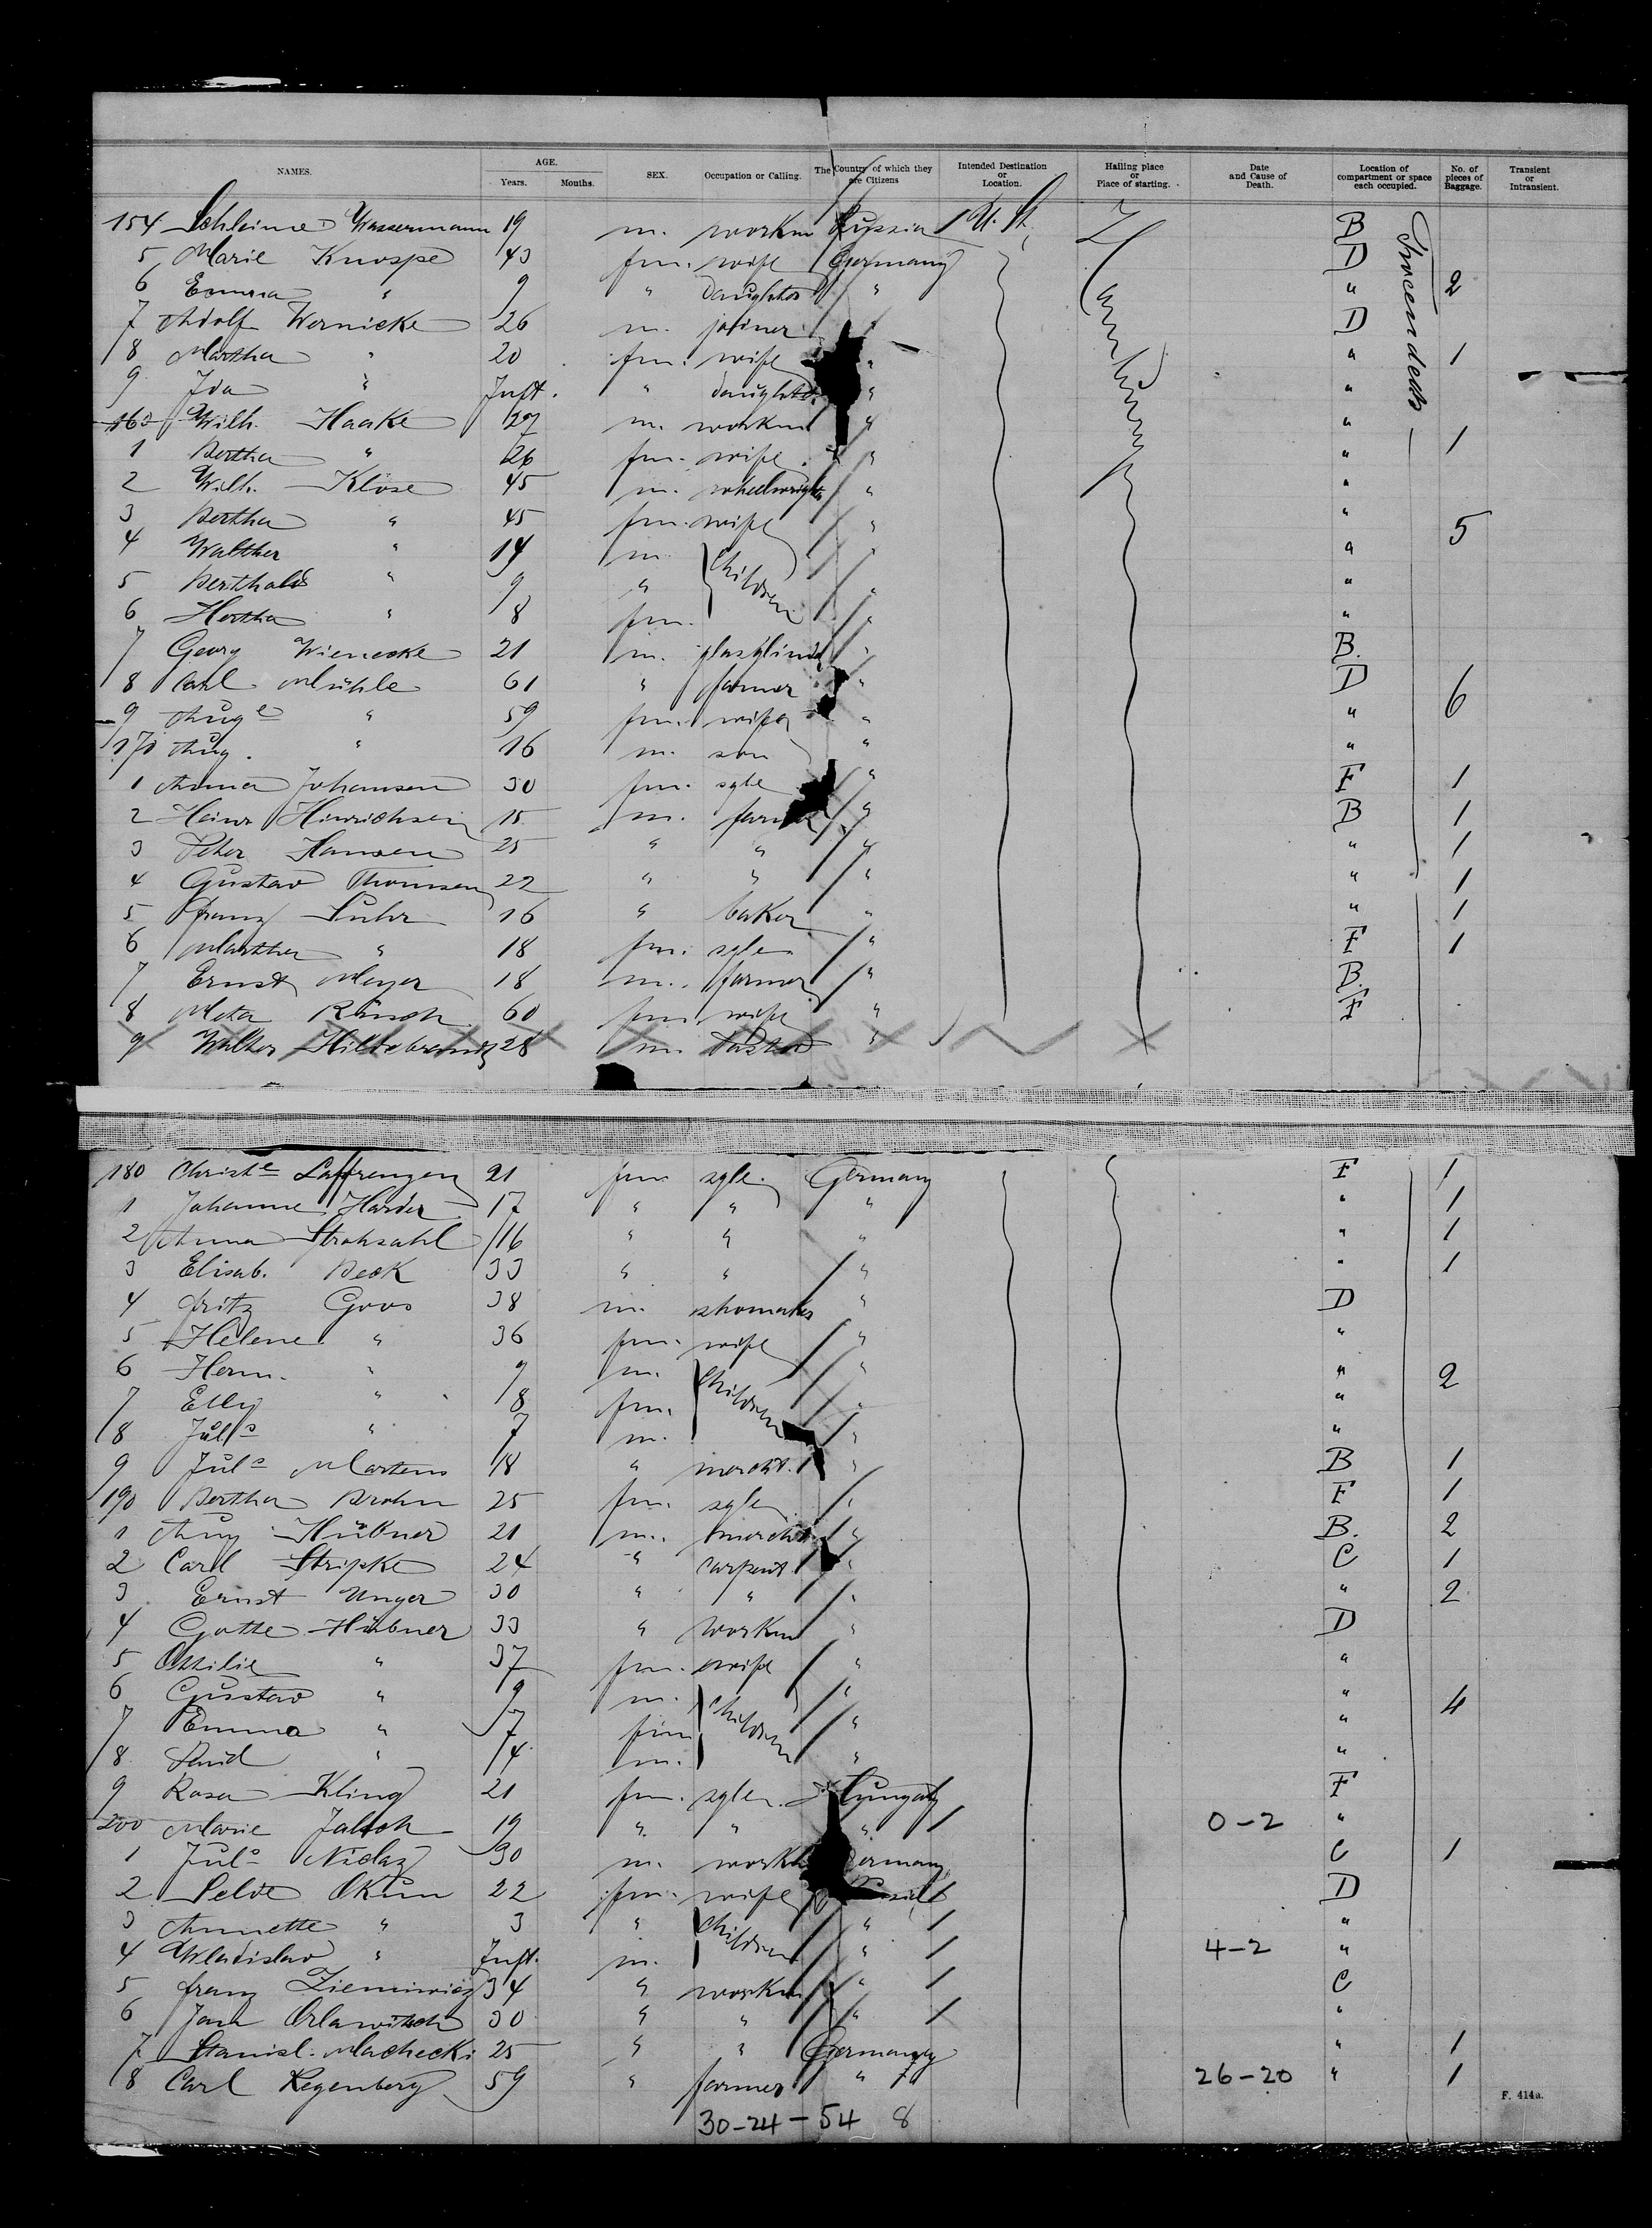 NAMES. AGE. Years. Months. SEX. Occupation or Calling. The Country of which they are Citizens Intended Destination or Location. Hailing place or Place of starting. Date and Cause of Death. Location of compartment or space each occupied. No. of pieces of Baggage. Transient or Intransient.
154 Schleime Wassermann 19 m. workm Russia U. St. Hamburg B Zwoendeck
5 Marie Knospe 43 fm. wife Germany D
6 Emma " 9 " daughter " " 2
7 Adolf Wernicke 26 m. joiner " D
8 Martha " 20 fm. wife " " 1
9 Ida " Inft. " daughter " "
160 Wilh. Haake 27 m. workm " "
1 Bertha " 26 fm. wife " " 1
2 Wilh. Klose 45 m. wheelwright " "
3 Bertha " 45 fm. wife " " 5
4 Walther " 14 m children " "
5 Berthold " 9 " " "
6 Hertha " 8 fm. " "
7 Georg Wienecke 21 m. " B.
8 Carl Mühle 61 " farmer " D 6
9 Auge " 59 fm. wife " "
170 Aug. " 16 m. son " "
1 Anna Johannsen 30 fm. sgle " F 1
2 Heinr Hinrichsen 15 m. farmer " B 1
3 Peter Hansen 25 " " " " 1
4 Gustav Thomsen 22 " " " " 1
5 Franz Suhr 16 " baker " " 1
6 Martha " 18 fm. sgle " F 1
7 Ernst Meyer 18 m. farmer " B.
8 Meta Räsch 60 fm. wife " F
9 Walther Hildebrandt 28 m. Pastor "
180 Christe Laffrenzen 21 fm sgle. Germany F 1
1 Johanne Harder 17 " " " " 1
2 Anna Strohsahl 16 " " " " 1
3 Elisab. Beck 33 " " " " 1
4 Fritz Goos 38 m. shomaker " D
5 Helene " 36 fm. wife " "
6 Herm. " 9 m. children " " 2
7 Elly " 8 fm. " "
8 Juls " 7 m. " "
9 Juls Martens 18 " mercht. " B 1
190 Bertha Brohn 25 fm. sgle " F 1
1 Aug Hübner 21 m. mercht. " B. 2
2 Carl Stripke 24 " carpent " C 1
3 Ernst Unger 30 " " " " 2
4 Gotte Hübner 33 " workm " D
5 Ottilie " 37 fm. wife " "
6 Gustav " 9 m. children " " 4
7 Emma " 7 fm " "
8 Paul " 4 m. " "
9 Rosa Kling 21 fm. sgle. Hungary F
200 Marie " 19 " " " 0-2 "
1 Juls Niclaz 30 m. workm Germany C 1
2 Selde Okun 22 fm. wife D
3 Annette " 3 " children " "
4 Wladislav " Inft. m. " 4-2 "
5 Franz Zieminwicz 34 " workm " C
6 Jan Orlawitsch 30 " " " "
7 Stanisl. Machecki 25 " " Germany " 1
8 Carl Regenberg 59 " farmer " 26-20 " 1
F. 414a.
30-24-54 8